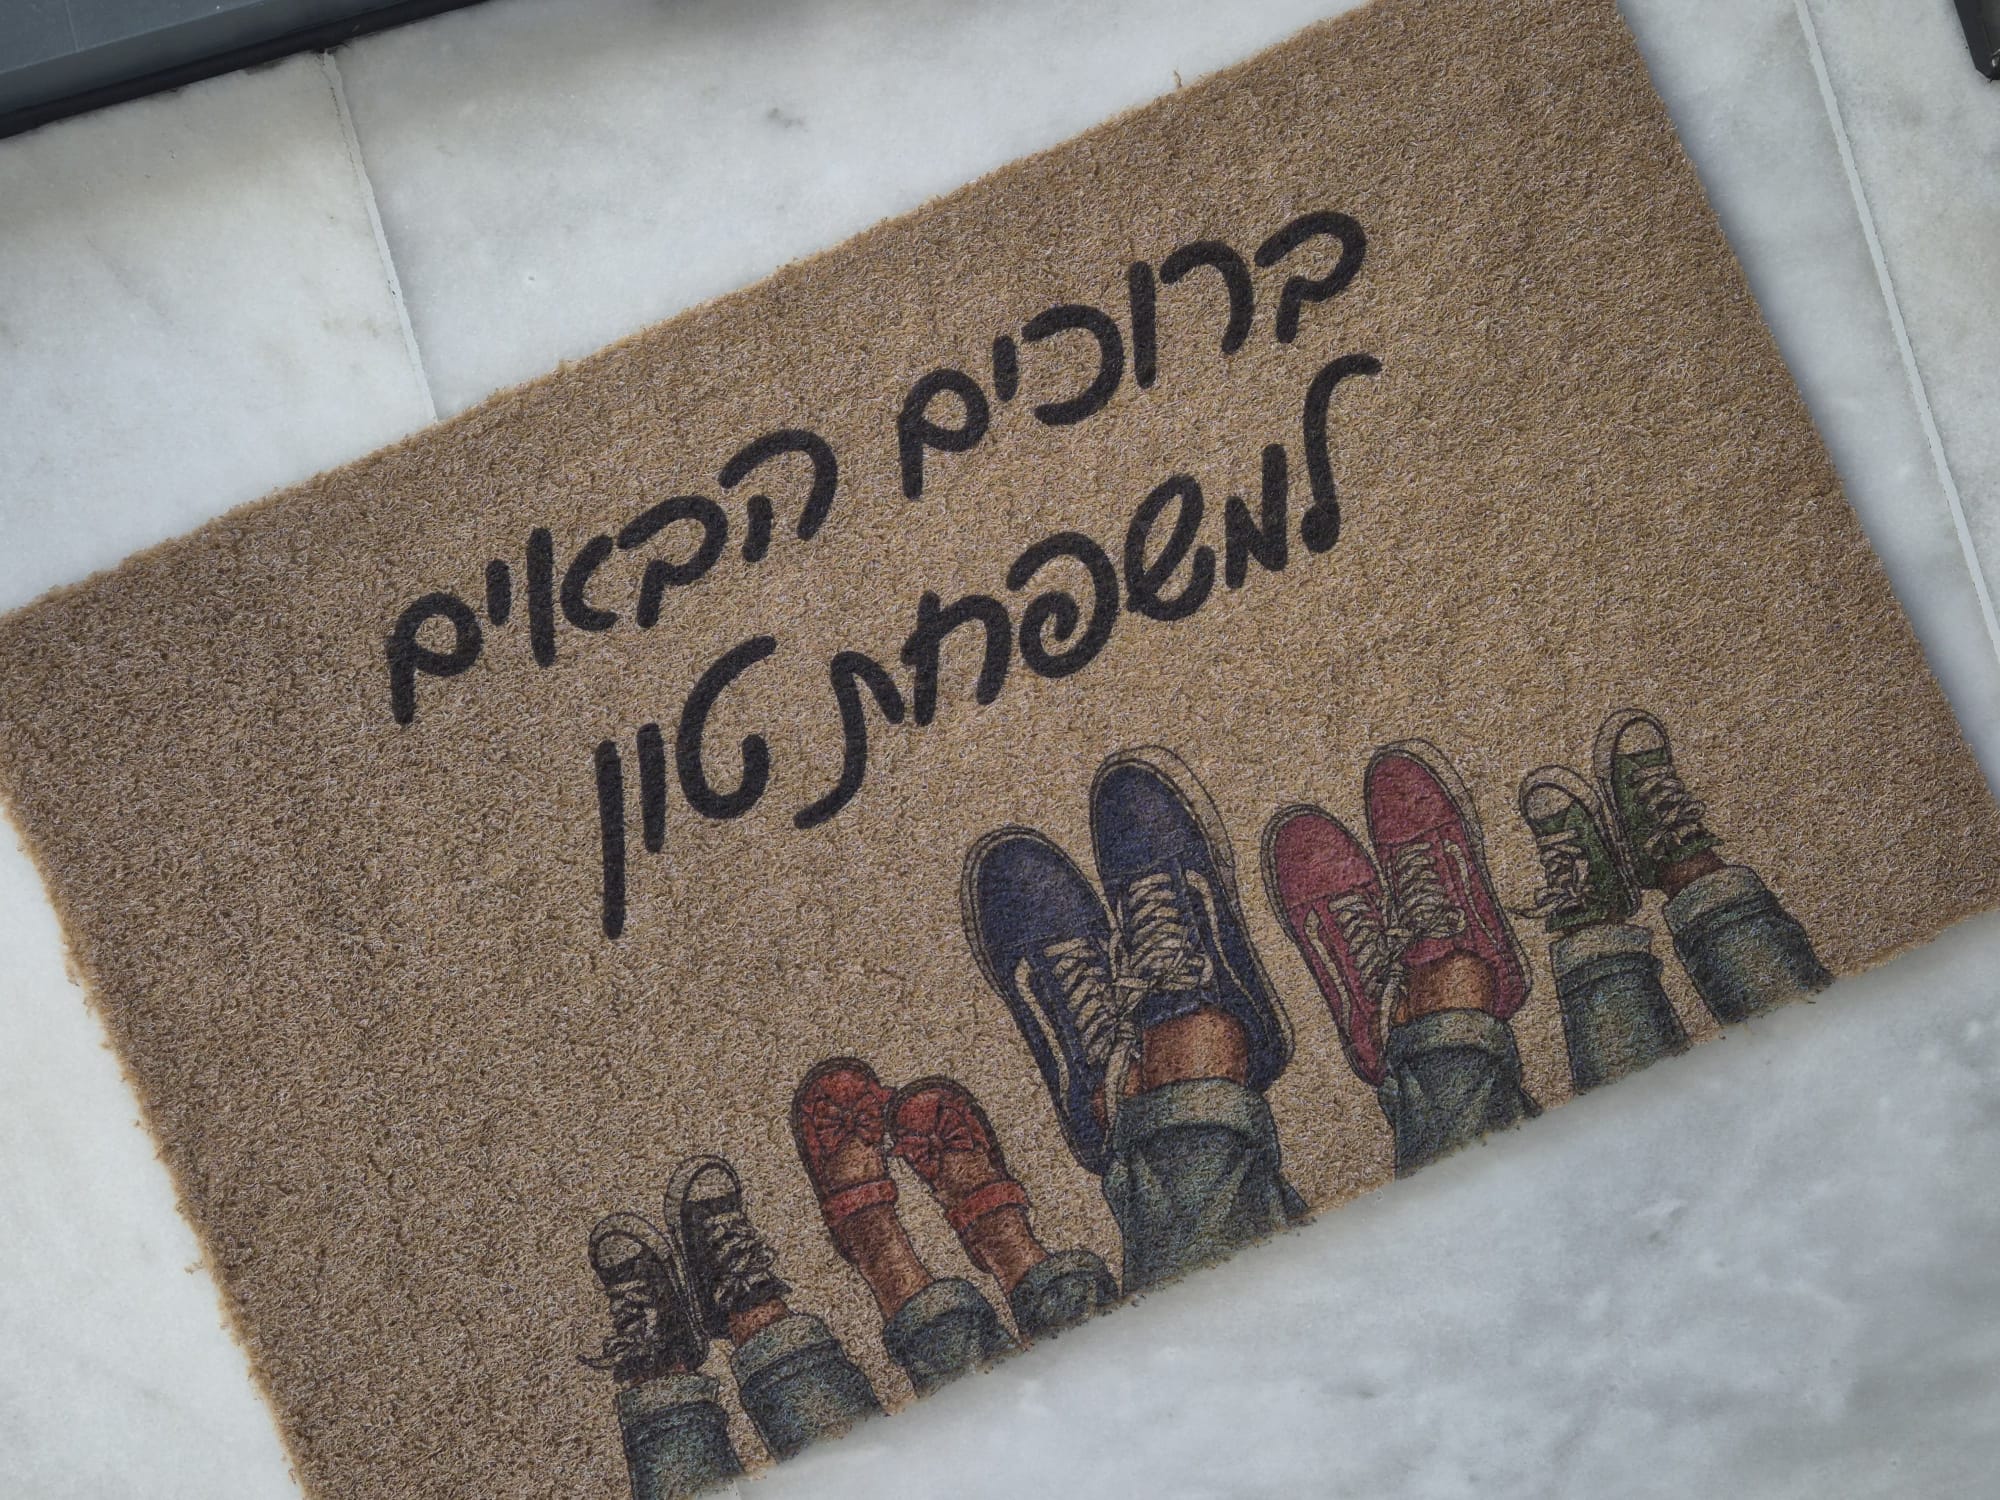 ברוכים הבאים
למשפחת טוין